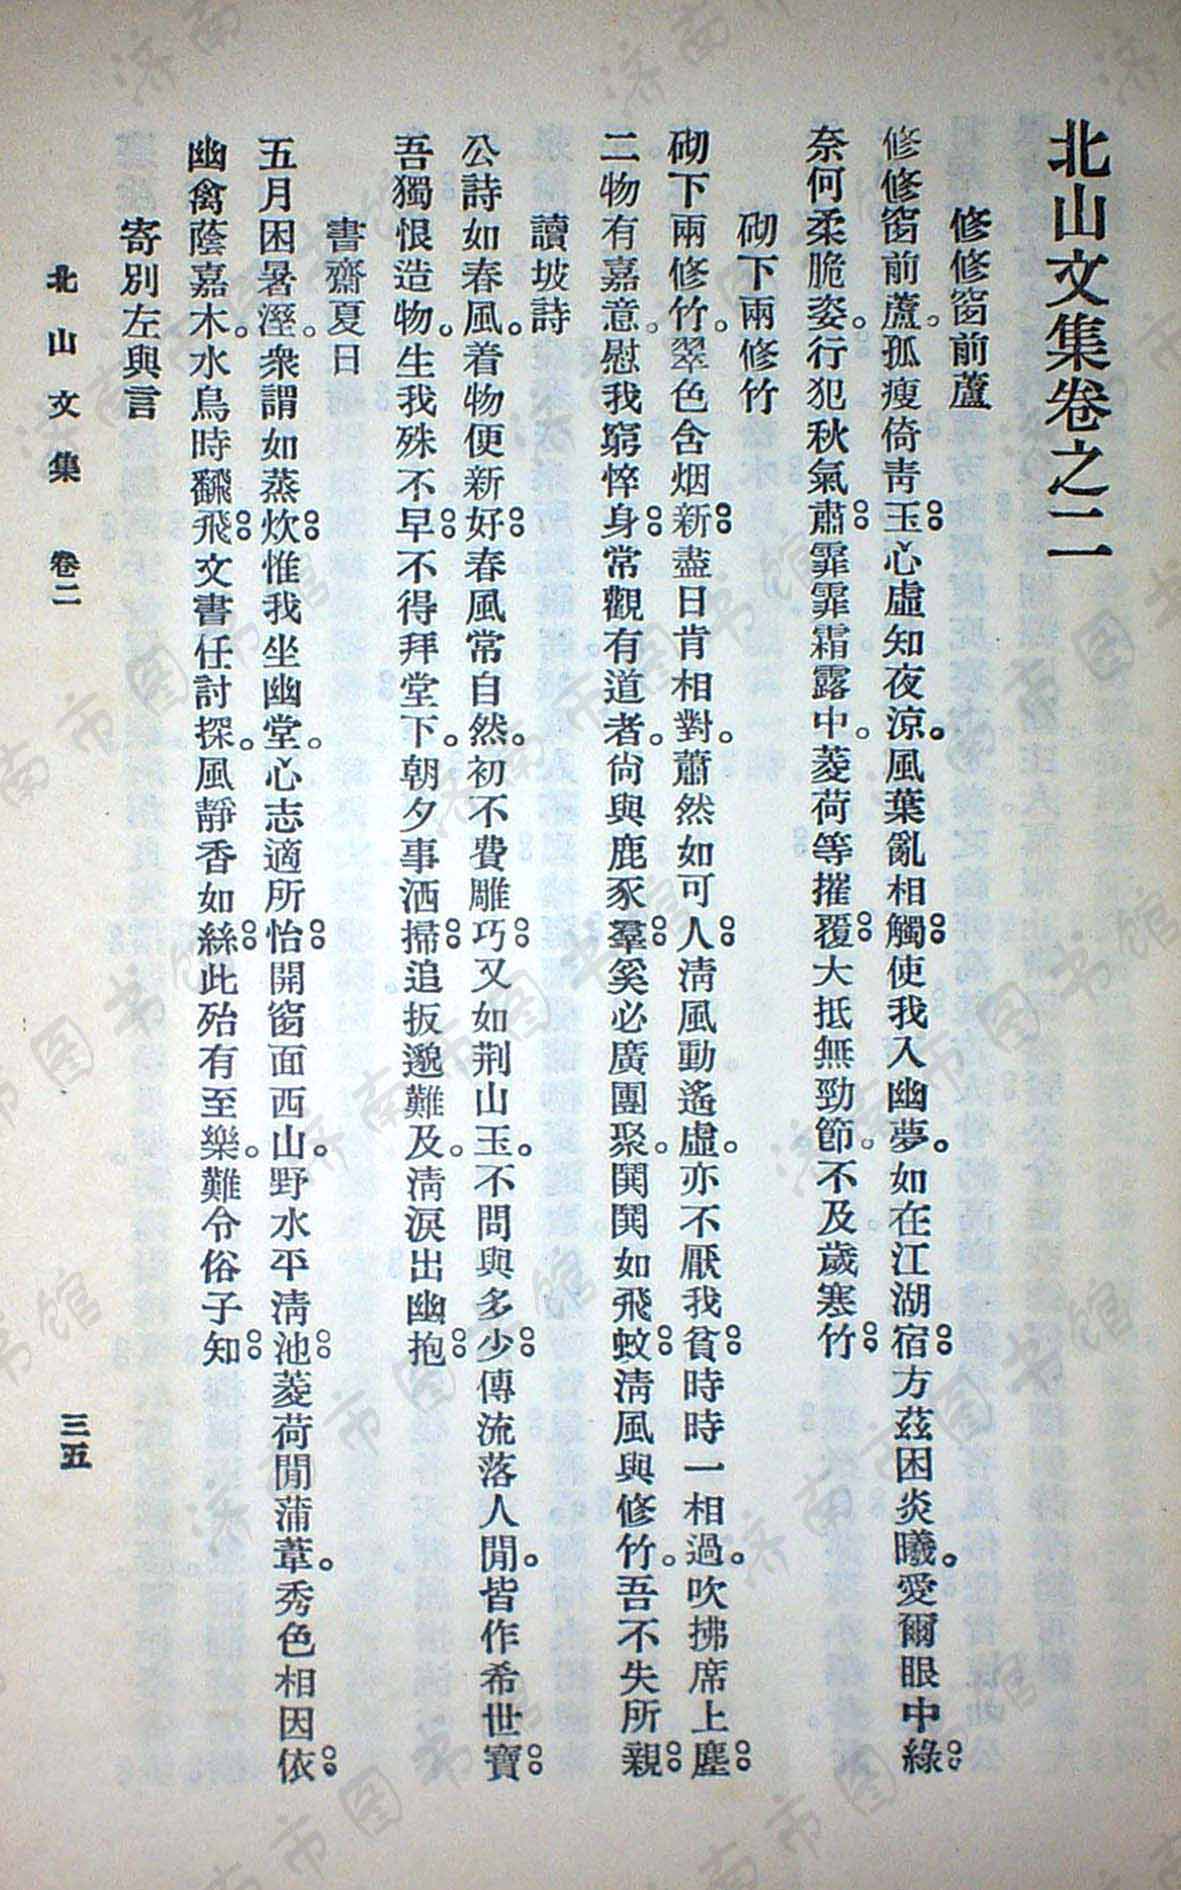 北山文集卷之二
修修窗前蘆
修修窗前蘆。孤瘦倚靑玉。心虛知夜涼。風葉亂相觸。使我入幽夢。如在江湖宿。方茲困炎曦。愛爾眼中綠。
奈何柔脆姿。行犯秋氣肅。霏霏霜露中。菱荷等摧覆。大抵無勁節。不及歲寒竹。
砌下兩修竹
砌下兩修竹。翠色含烟新。盡日肯相對。蕭然如可人。淸風動遙虛。亦不厭我貧。時時一相過。吹拂席上塵。
二物有嘉意。慰我窮悴身。常觀有道者。尙與鹿豕羣。奚必廣團聚。鬨鬨如飛蚊。淸風與修竹。吾不失所親。
讀坡詩
公詩如春風。着物便新好。春風常自然。初不費雕巧。又如荆山玉。不問與多少。傳流落人閒。皆作希世寶。
吾獨恨造物。生我殊不早。不得拜堂下。朝夕事洒掃。追扳邈難及。淸淚出幽抱。
書齋夏日
五月困暑溼。衆謂如蒸炊。惟我坐幽堂。心志適所怡。開窗面西山。野水平淸池。菱荷閒蒲葦。秀色相因依。
幽禽蔭嘉木。水鳥時翻飛。文書任討探。風靜香如絲。此殆有至樂。難令俗子知。
寄別左與言
北山文集 卷二 三五
济南市图书馆